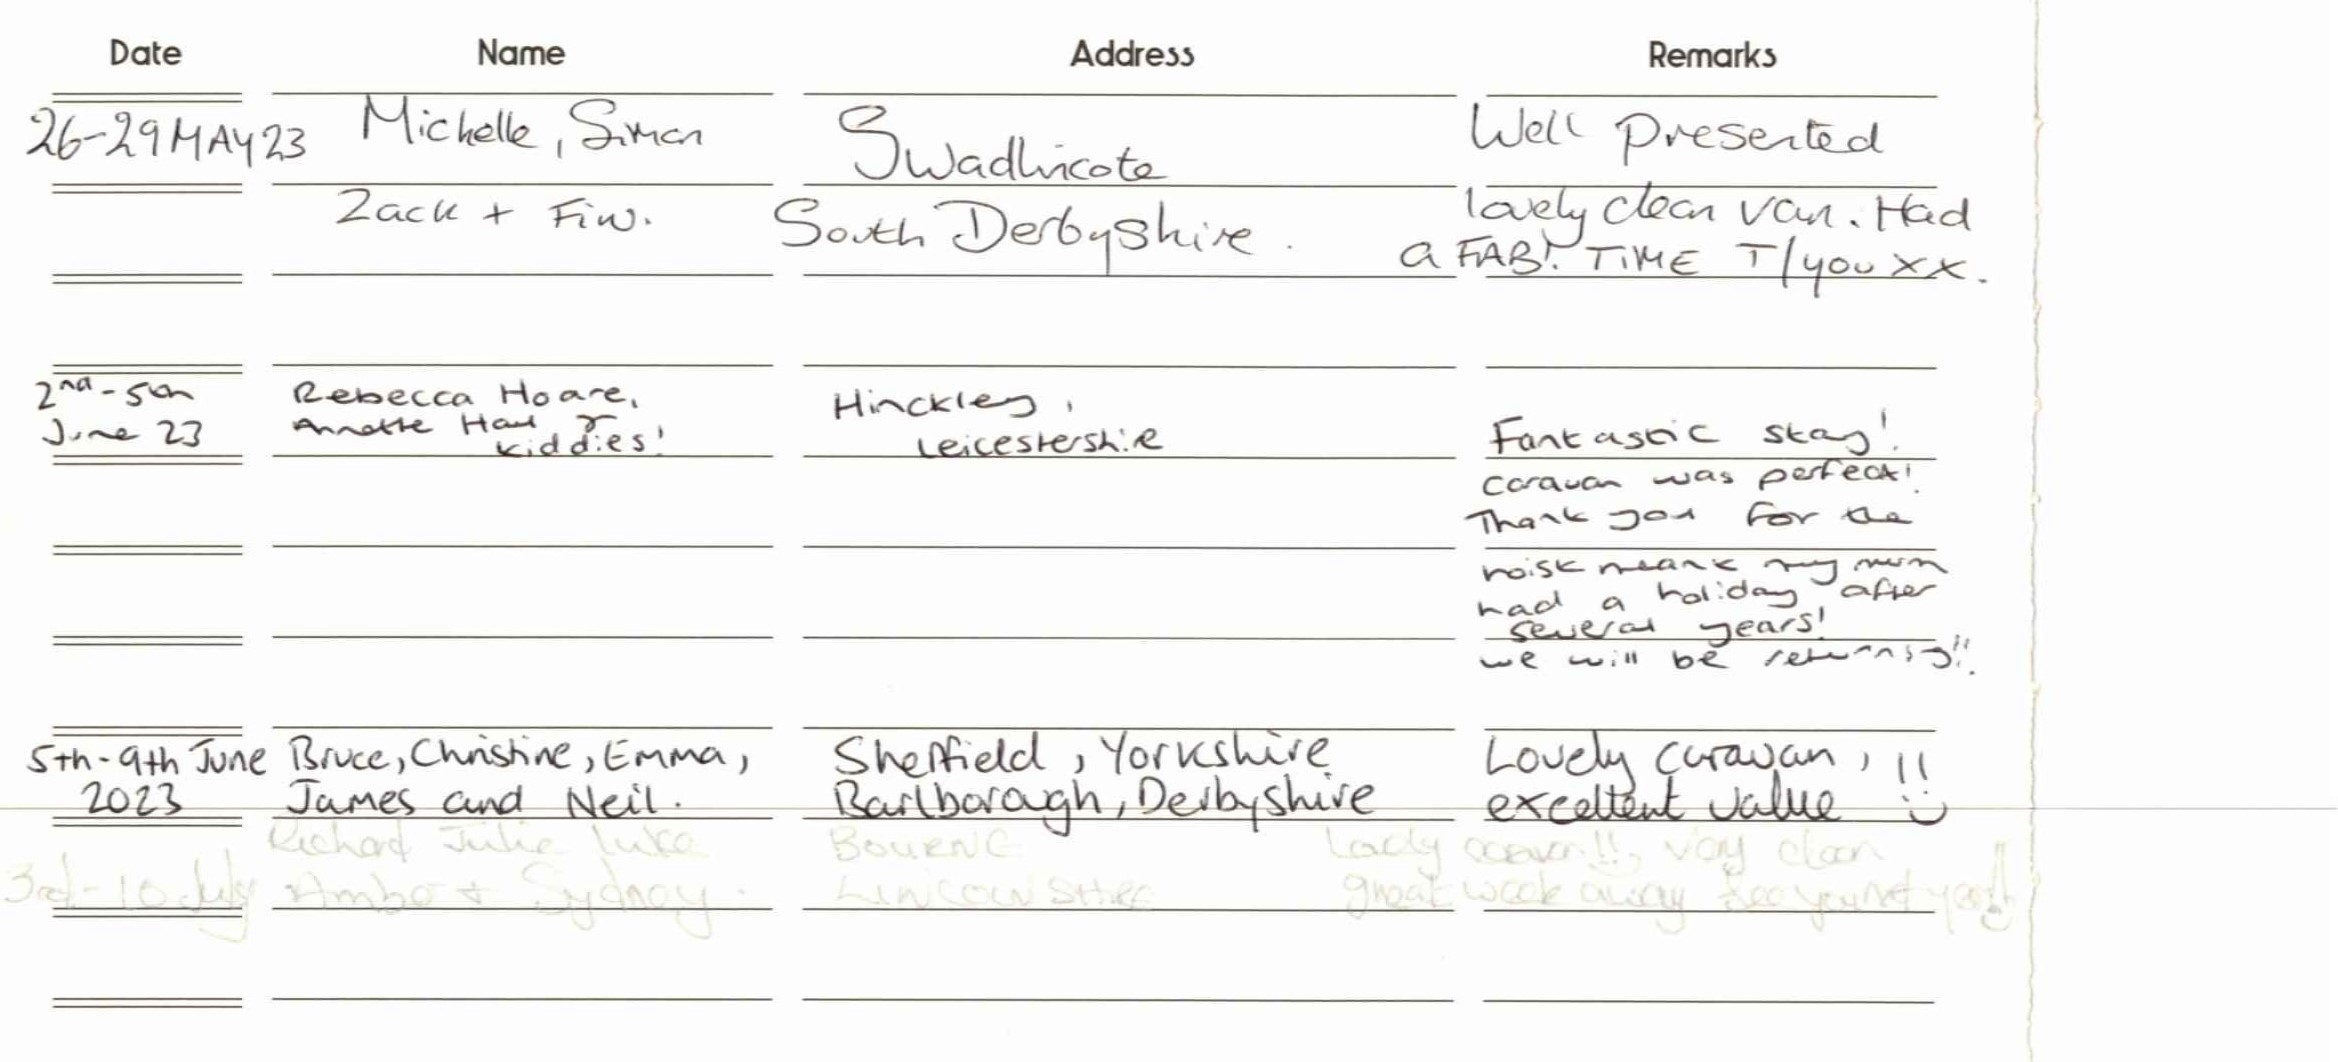 Date Name Address Remarks
26-29 MAY 23 Michelle, Simon Swadlincote Well Presented
Zack + Fin. South Derbyshire. lovely clean van. Had
a FAB! TIME T/you xx.
2nd - 5th Rebecca Hoare, Hinckley,
June 23 Annette & Leicestershire Fantastic stay!
kiddies!
caravan was perfect!
Thank you for the
meant my mum
had a holiday after
several years!
we will be returning!!
5th - 9th June Bruce, Christine, Emma, Sheffield, Yorkshire Lovely caravan, !!
2023 James and Neil. Barlborough, Derbyshire excellent value
Richard Julie Luke BOURNE Lovely !!, very clean
3rd - 10 July + Sydney. great week away see you next year